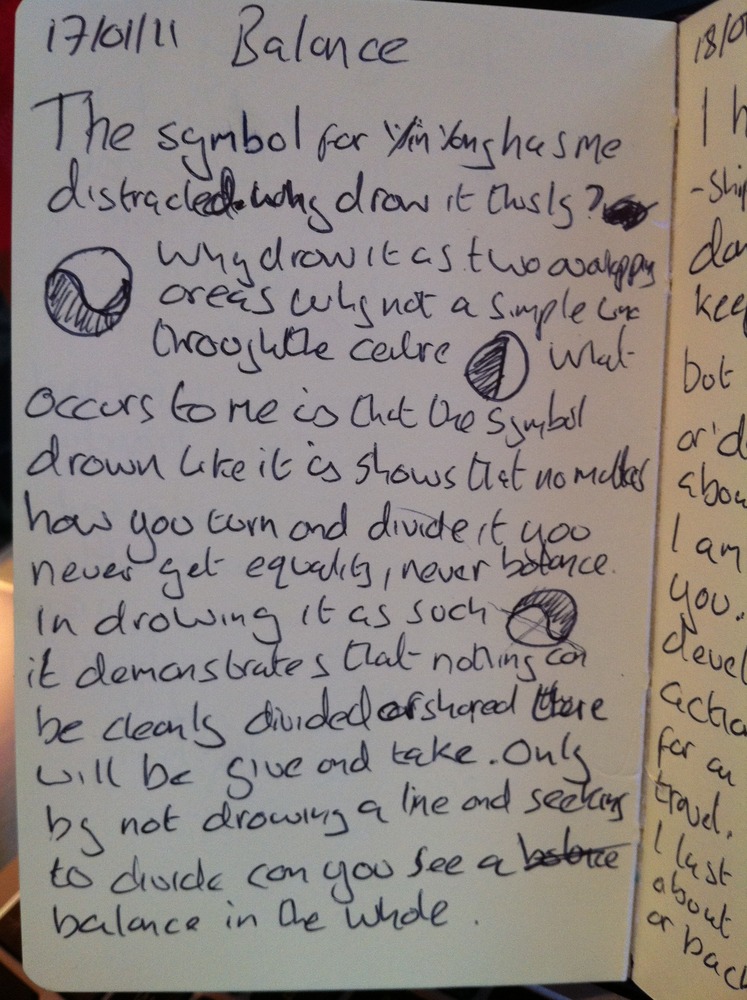 17/01/11 Balance
The symbol for Yin Yang has me
distracted. Why drow it thusly?
Why drow it as two overlapping
areas why not a simple line
through the centre what
occurs to me is that the symbol
drown like it is shows that no matter
how you turn and divide it you
never get equality, never balance.
In drowing it as such
it demonstrates that nothing can
be cleanly divided or shared there
will be give and take. Only
by not drowing a line and seeking
to divide can you see a balance
balance in the whole.
18/0
I h
-ship
dan
keep
but
or'd
abou
I am
you.
devel
actio
for an
travel.
I last
about
or back